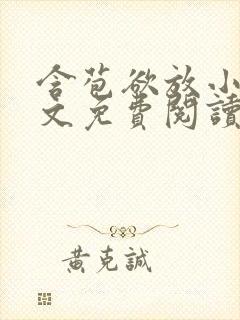 含苞欲放小
文免費閱讀
黃克誠